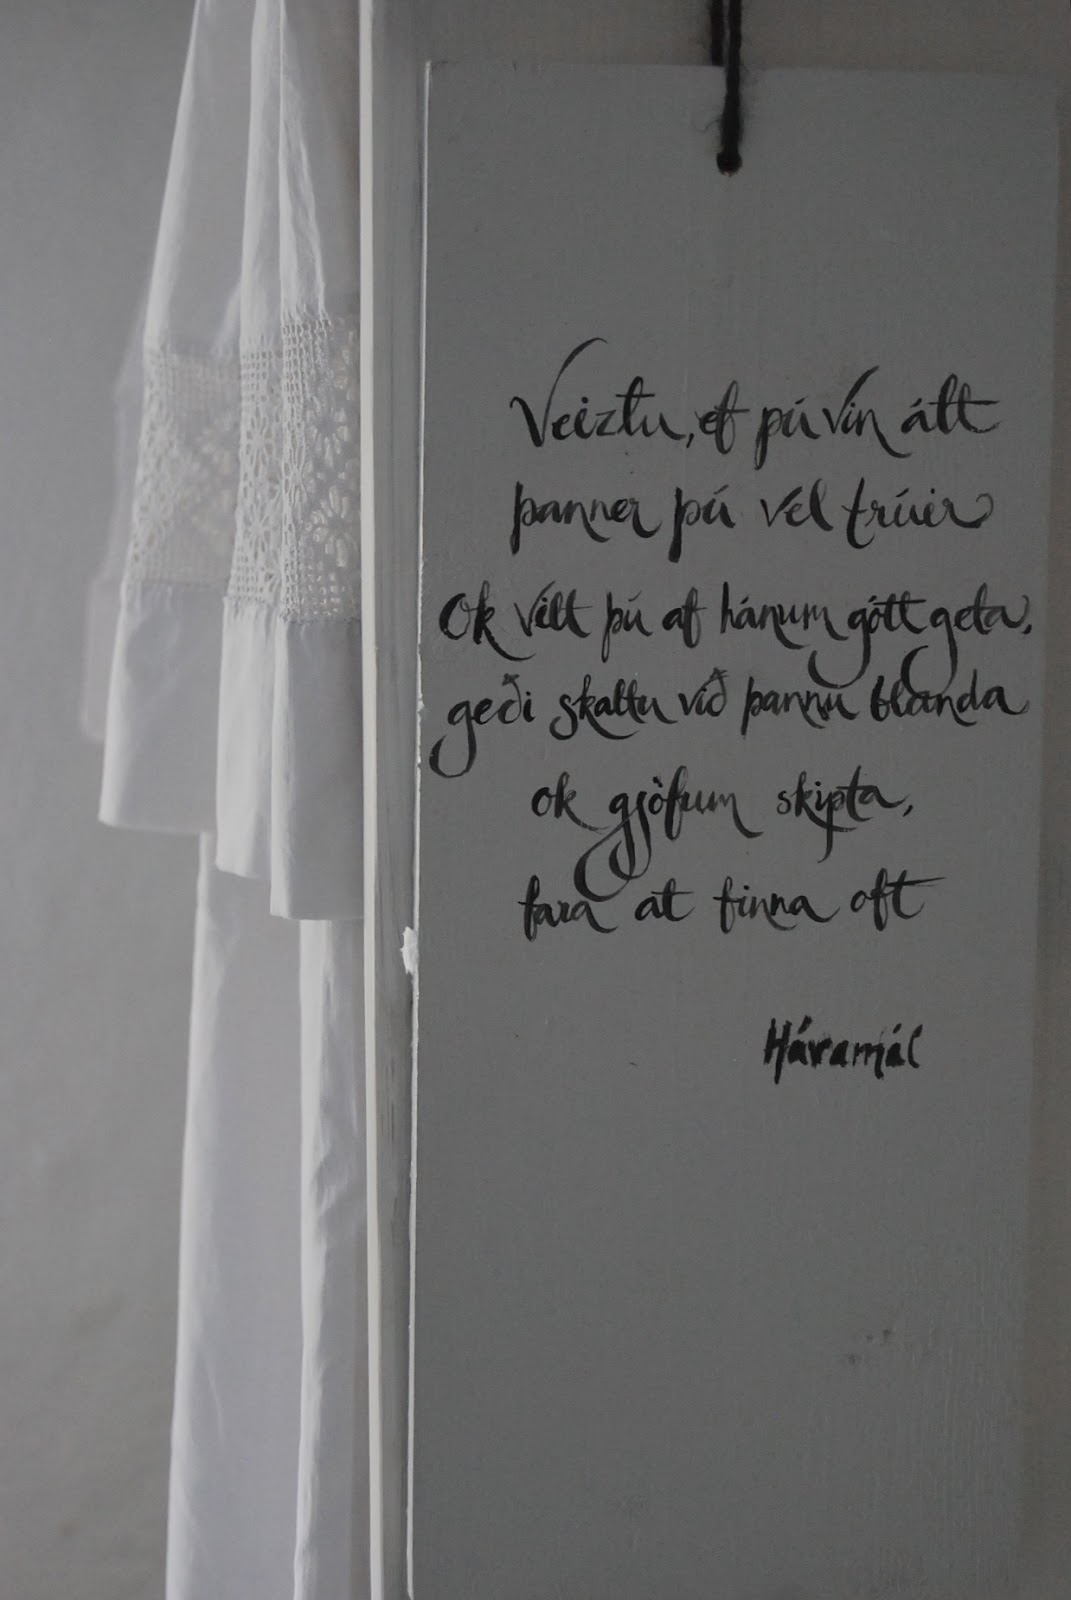 Veiztu, ef þú vin átt
þanner þú vel trúir
Ok vilt þú af hánum gótt geta,
geði skaltu við þannu blanda
ok gjöfum skipta,
fara at finna oft
Hávamál